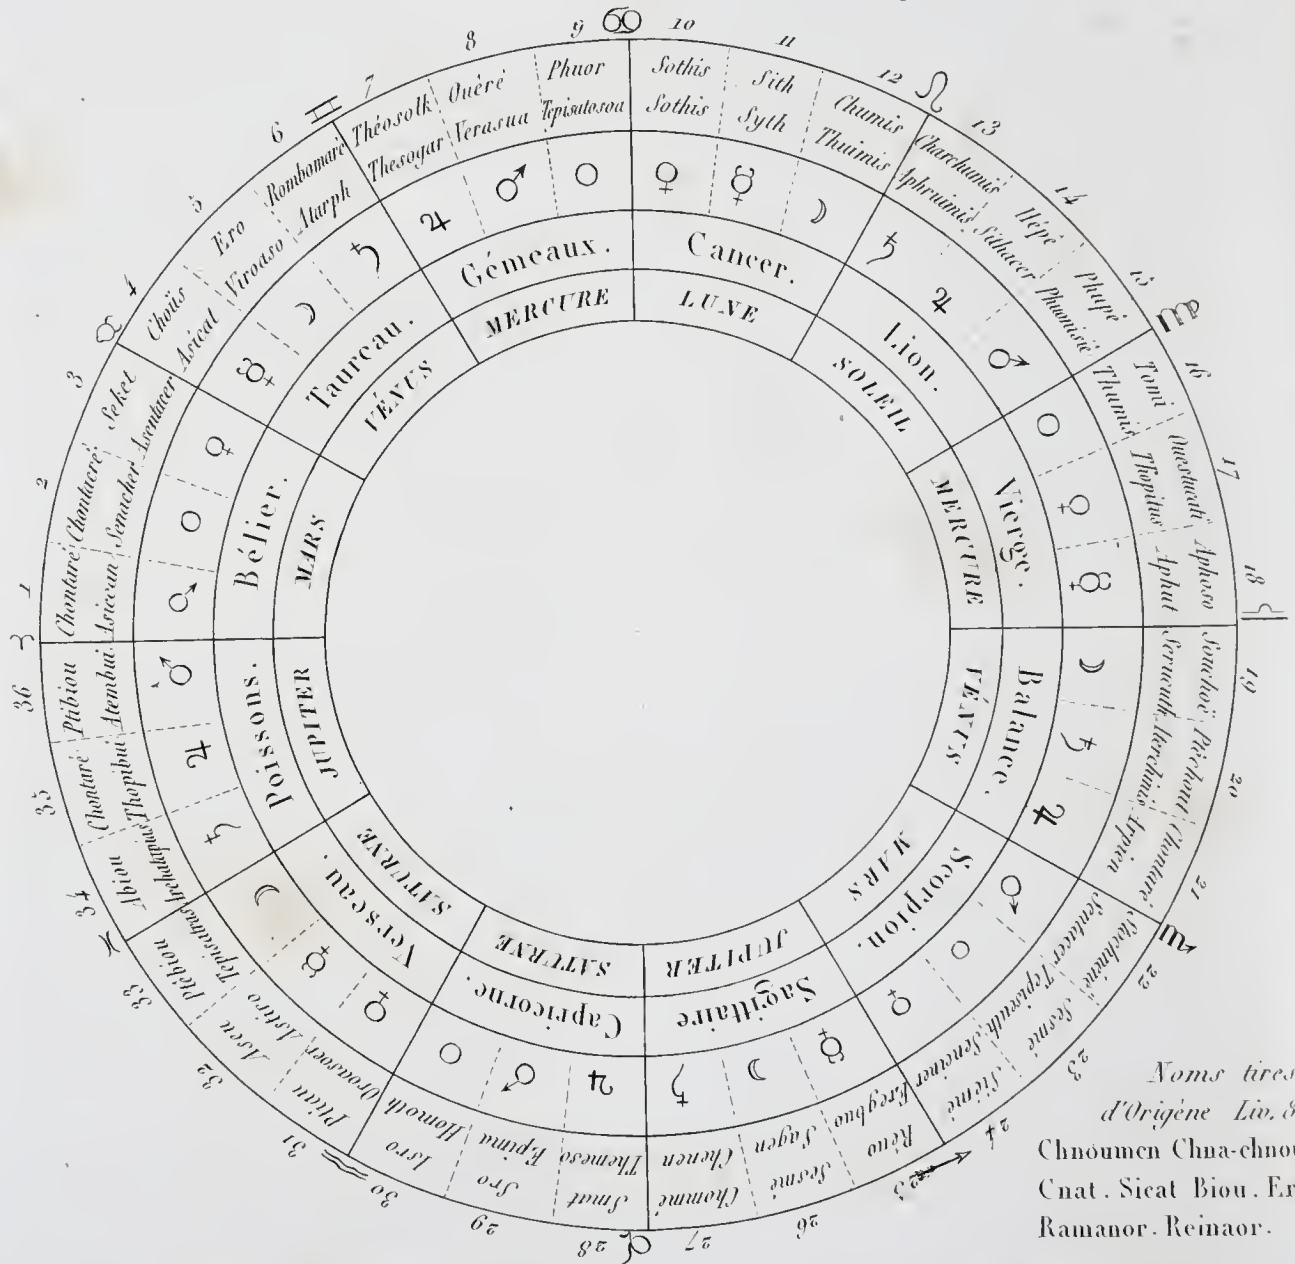 1
Chontaré
Asiccan
2
Chontacré
Senacher
3
Seket
Asentacer
4
Choüs
Asicat
5
Ero
Viroaso
6
Rombomaré
Atarph
7
Théosolk
Thesogar
8
Ouéré
Verasua
9
Phuor
Tepisatosoa
10
Sothis
Sothis
11
Sith
Syth
12
Chumis
Thuimis
13
Charchumis
Aphruimis
14
Hépé
Sithacer
15
Phupé
Phuonisié
16
Tomi
Thumis
17
Ouestucati
Thopitus
18
Aphoso
Aphut
19
Souchoë
Serucuth
20
Ptéchout
Aterchinis
21
Chontaré
Arpien
22
Stochnène
Sentacer
23
Sesmé
Tepiseuth
24
Sisiémé
Senciner
25
Réuo
Eregbuo
26
Sesmé
Sagen
27
Chommé
Chenen
28
Smat
Themeso
29
Sro
Epima
30
Isro
Homoth
31
Ptiau
Oroasoer
32
Aseu
Astiro
33
Ptébiou
Tepisatras
34
Abiou
Archatapias
35
Chontaré
Thopibui
36
Ptibiou
Atembui
Bélier.
Taureau.
Gémeaux.
Cancer.
Lion.
Vierge.
Balance.
Scorpion.
Sagittaire
Capricorne.
Verseau.
Poissons.
MARS
VÉNUS
MERCURE
LUNE
SOLEIL
MERCURE
VÉNUS
MARS
JUPITER
SATURNE
SATURNE
JUPITER
Noms tires
d'Origène Liv. 8
Chnoumen Chna-chnou
Cnat. Sicat Biou. Er
Ramanor. Reinaor.